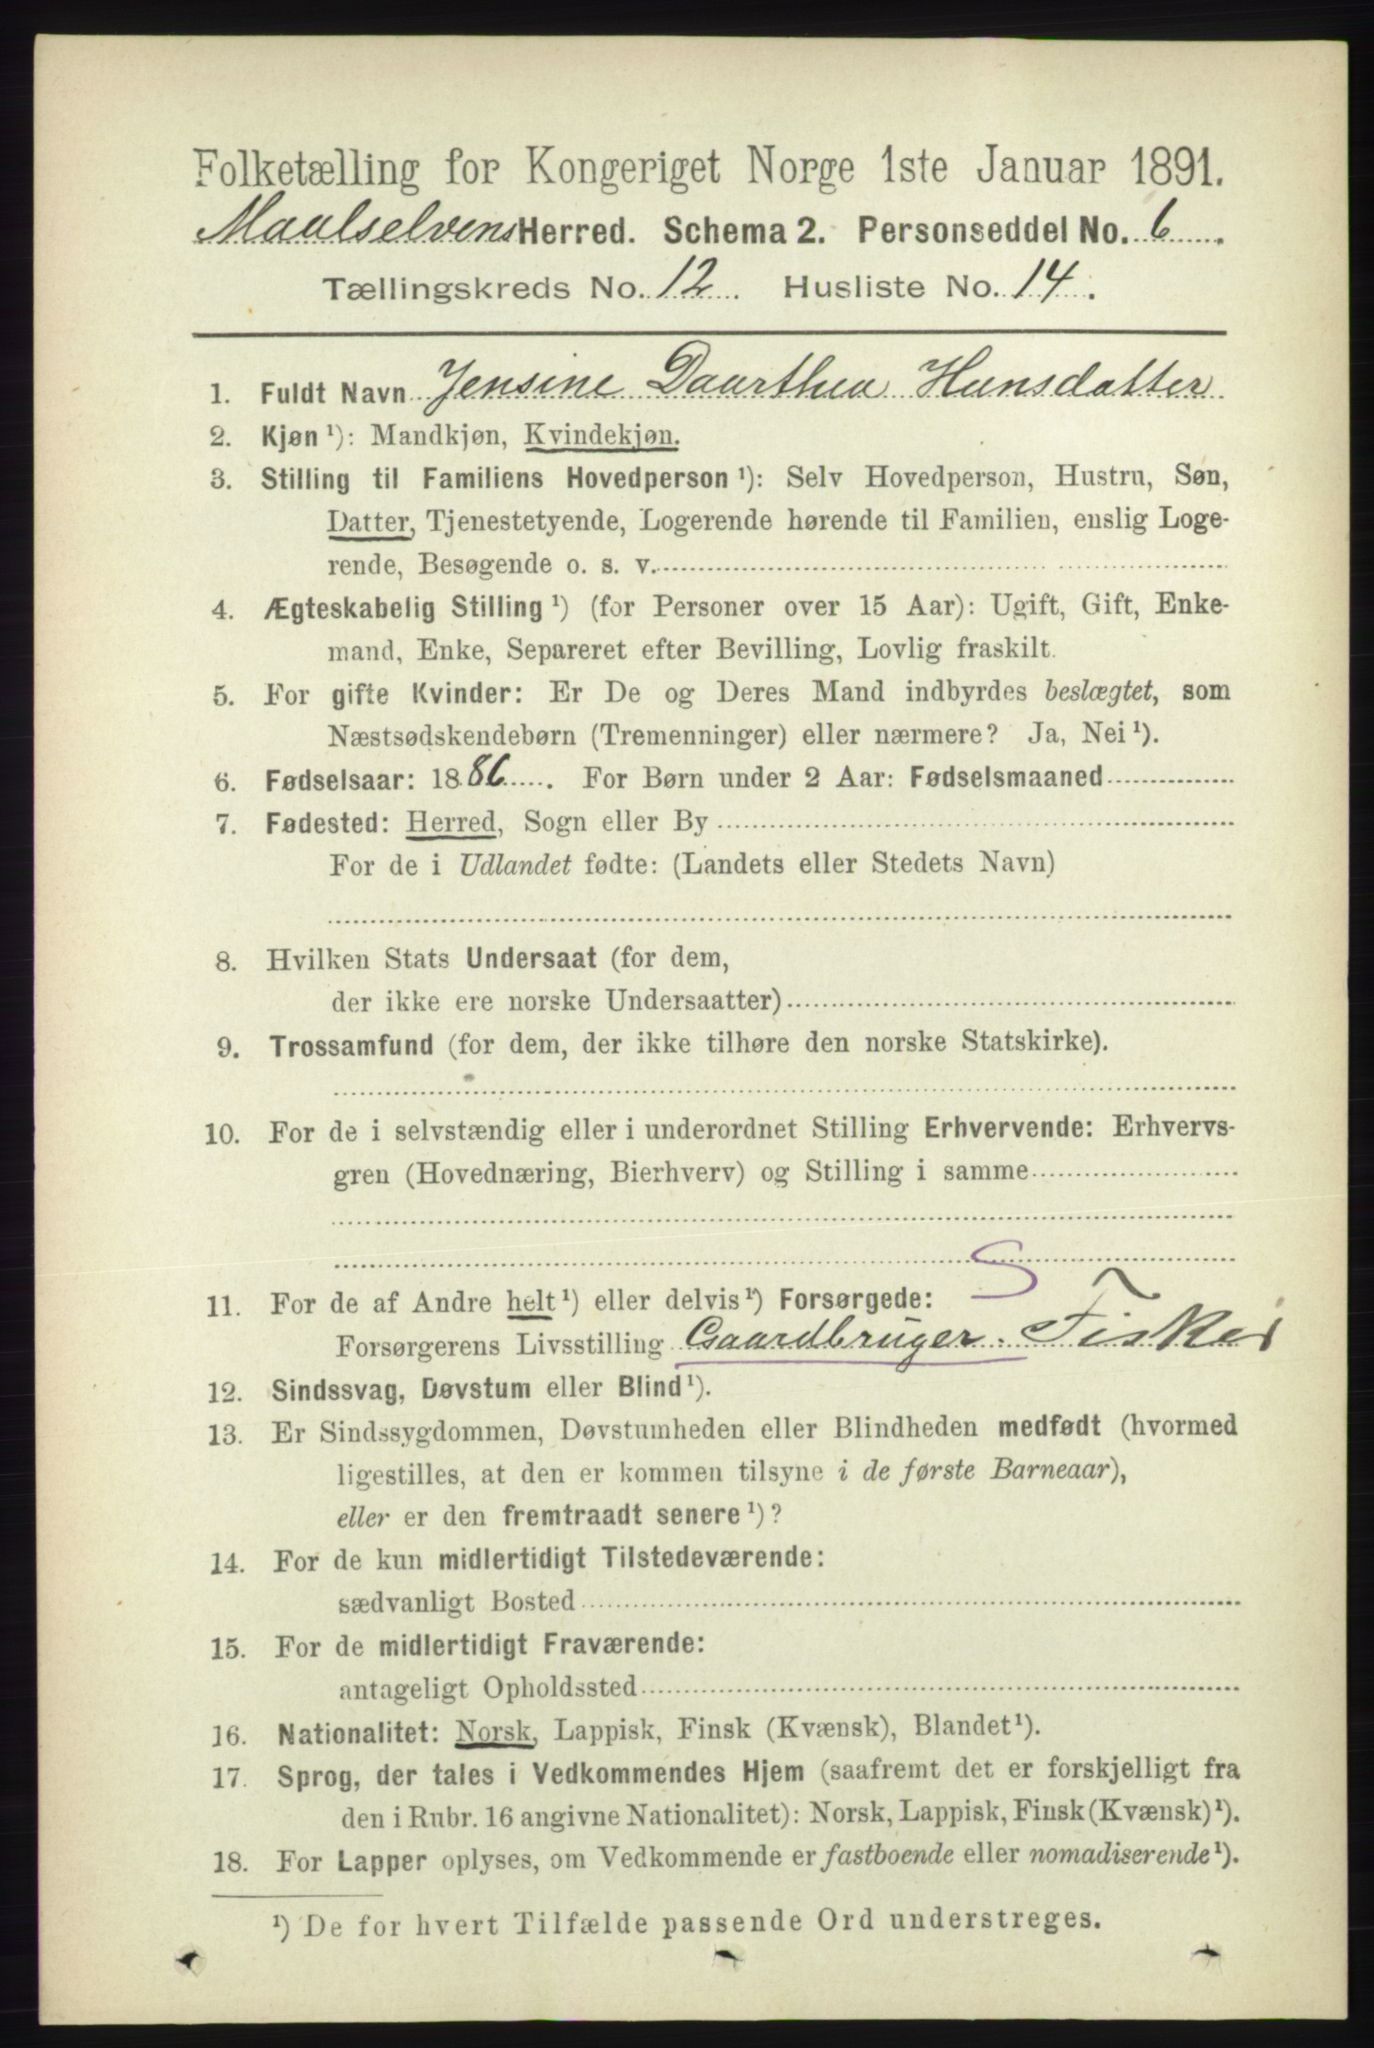 Folketælling for Kongeriget Norge 1ste Januar 1891.
Maalselvens Herred. Schema 2. Personseddel No. 6.
Tællingskreds No. 12. Husliste No. 14.
1. Fuldt Navn Jensine Daarthea Hansdatter
2. Kjøn ¹): Mandkjøn, Kvindekjøn.
3. Stilling til Familiens Hovedperson ¹): Selv Hovedperson, Hustru, Søn,
Datter, Tjenestetyende, Logerende hørende til Familien, enslig Loge-
rende, Besøgende o. s. v.
4. Ægteskabelig Stilling ¹) (for Personer over 15 Aar): Ugift, Gift, Enke-
mand, Enke, Separeret efter Bevilling, Lovlig fraskilt.
5. For gifte Kvinder: Er De og Deres Mand indbyrdes beslægtet, som
Næstsødskendebørn (Tremenninger) eller nærmere? Ja, Nei ¹).
6. Fødselsaar: 1886. For Børn under 2 Aar: Fødselsmaaned
7. Fødested: Herred, Sogn eller By
For de i Udlandet fødte: (Landets eller Stedets Navn)
8. Hvilken Stats Undersaat (for dem,
der ikke ere norske Undersaatter)
9. Trossamfund (for dem, der ikke tilhøre den norske Statskirke).
10. For de i selvstændig eller i underordnet Stilling Erhvervende: Erhvervs-
gren (Hovednæring, Bierhverv) og Stilling i samme
S
11. For de af Andre helt ¹) eller delvis ¹) Forsørgede:
Forsørgerens Livsstilling Gaardbruger. Fisker
12. Sindssvag, Døvstum eller Blind ¹).
13. Er Sindssygdommen, Døvstumheden eller Blindheden medfødt (hvormed
ligestilles, at den er kommen tilsyne i de første Barneaar),
eller er den fremtraadt senere ¹)?
14. For de kun midlertidigt Tilstedeværende:
sædvanligt Bosted
15. For de midlertidigt Fraværende:
antageligt Opholdssted
16. Nationalitet: Norsk, Lappisk, Finsk (Kvænsk), Blandet ¹).
17. Sprog, der tales i Vedkommendes Hjem (saafremt det er forskjelligt fra
den i Rubr. 16 angivne Nationalitet): Norsk, Lappisk, Finsk (Kvænsk) ¹).
18. For Lapper oplyses, om Vedkommende er fastboende eller nomadiserende ¹).
¹) De for hvert Tilfælde passende Ord understreges.